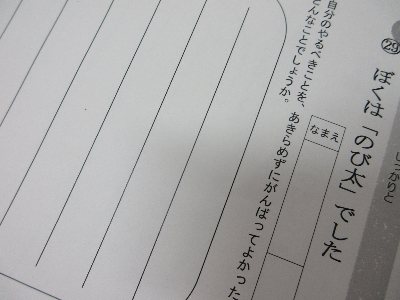 しっかりと
㉙ ぼくは「のび太」でした
なまえ
自分のやるべきことを、あきらめずにがんばってよかった
どんなことでしょうか。